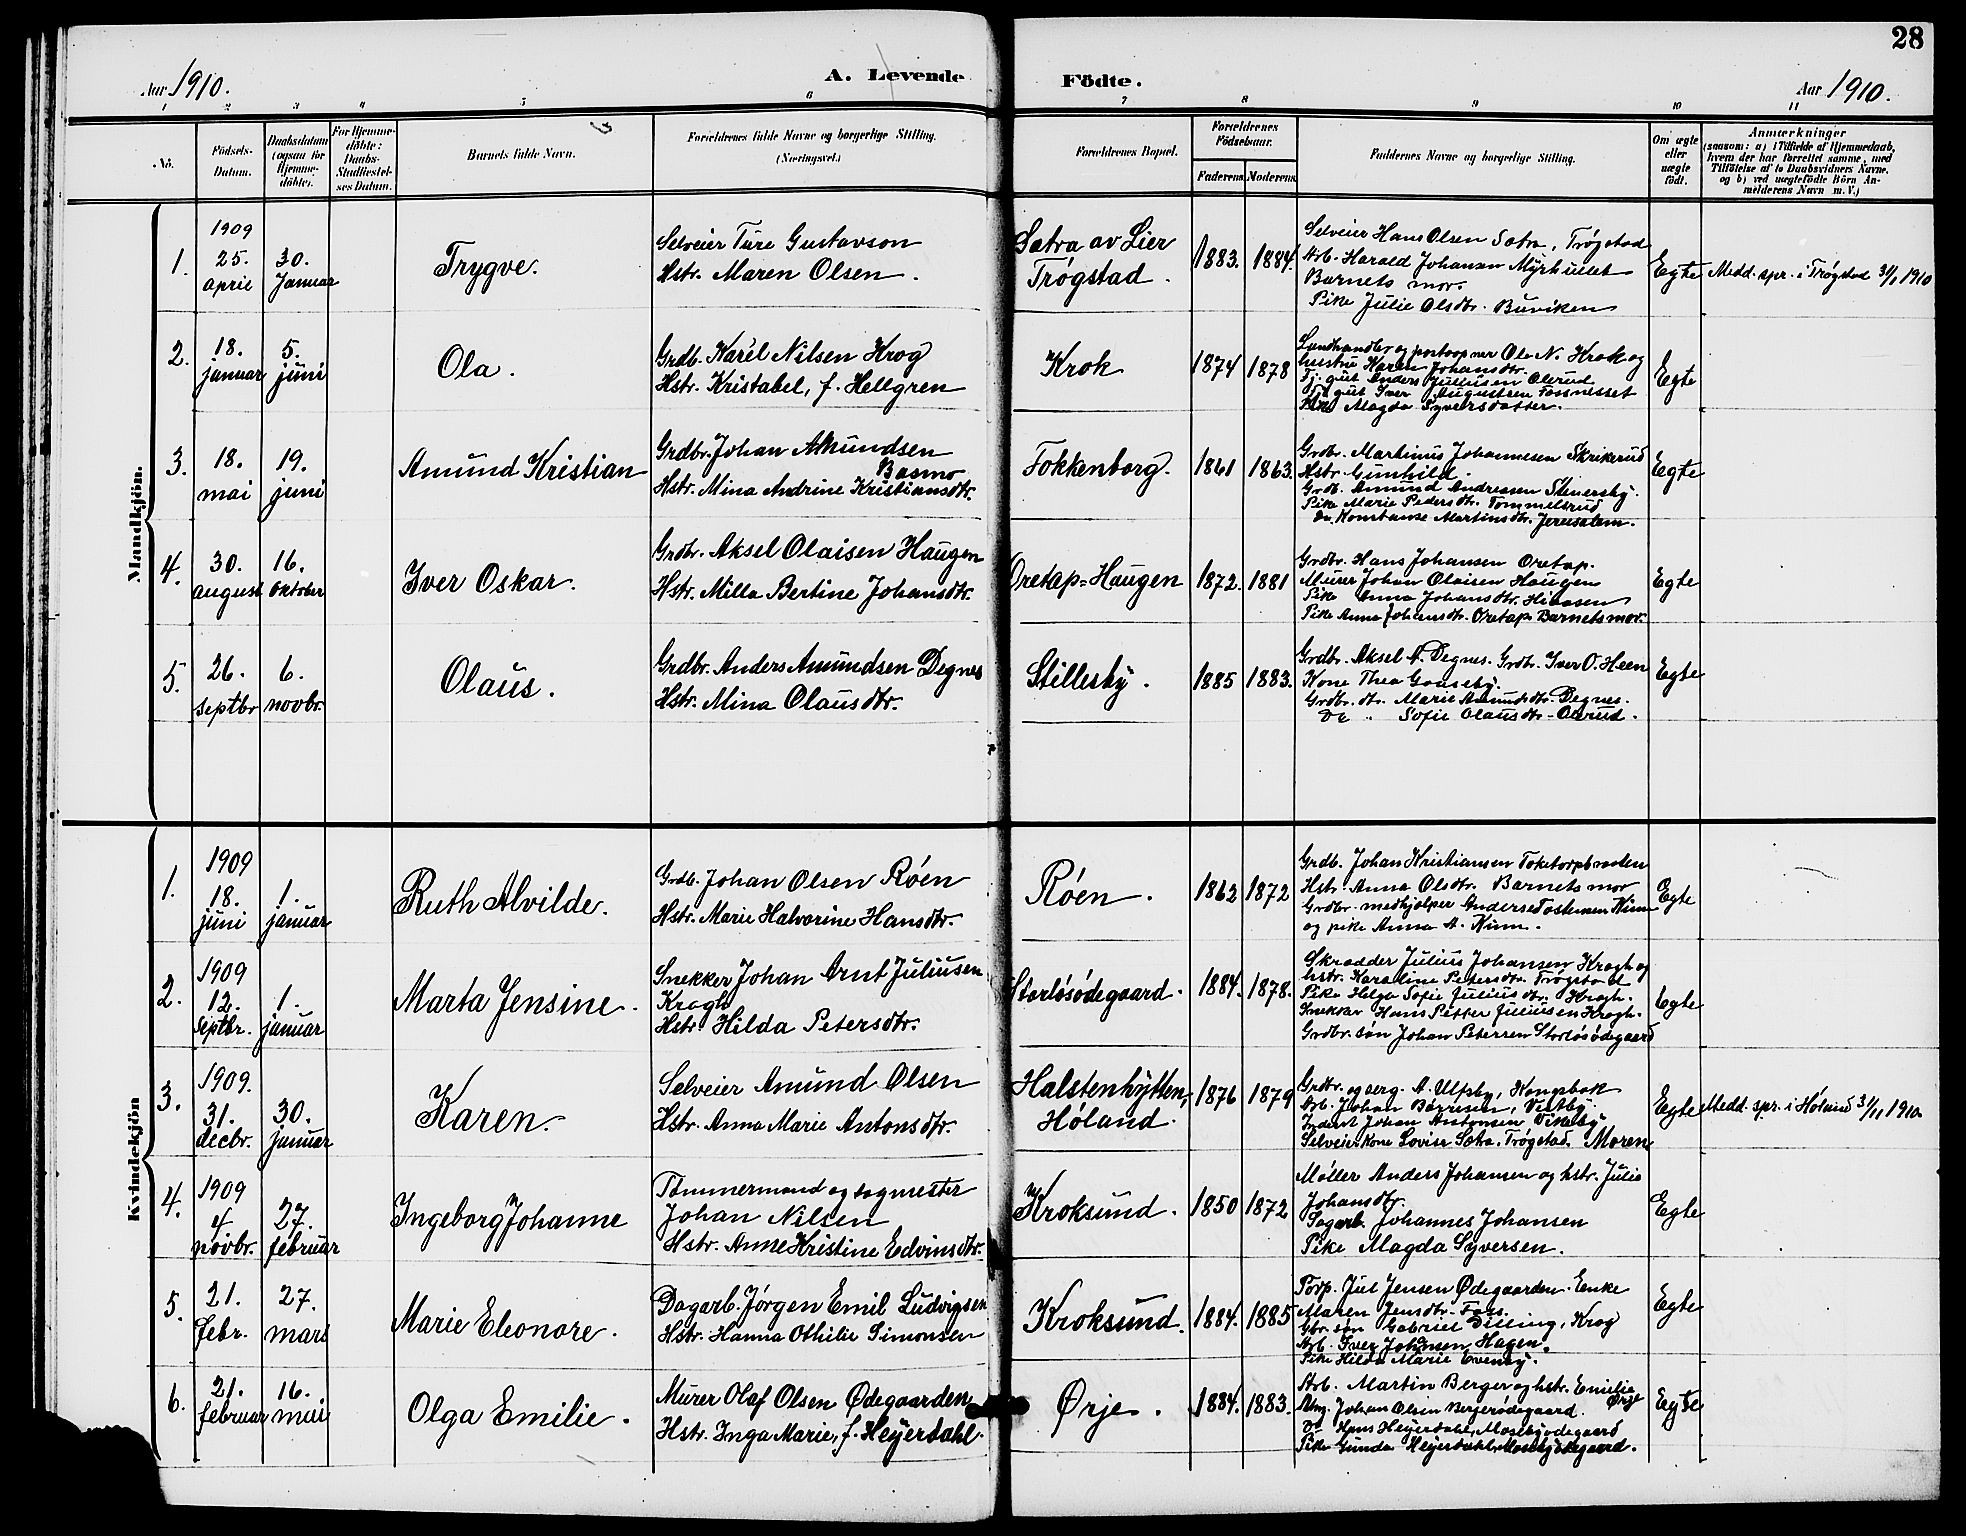 28
Aar 1910.
A. Levende Födte.
Aar 1910.
1 2 3 4 5 6 7 8 9 10 11
No.
Födsels-Datum.
Daabsdatum (ogsaa for Hjemme-döbte).
For Hjemme-döbte: Daabs-Stadfæstel-ses Datum.
Barnets fulde Navn.
Forældrenes fulde Navne og borgerlige Stilling.
(Næringsvei.)
Forældrenes Bopæl.
Forældrenes Födselsaar.
Faderens Moderens
Faddernes Navne og borgerlige Stilling.
Om ægte eller uægte födt.
Anmærkninger
(saasom: a) i Tilfælde af Hjemmedaab,
hvem der har forrettet samme, med
Tilföielse af to Daabsvidners Navne,
og b) ved uægtefödte Börn An-
melderens Navn m. V.)
Mandkjön.
1.
1909
25.
april
30.
Januar
Trygve.
Selveier Ture Gustavson
Hstr. Maren Olsen.
Sætra av Lier
Trøgstad.
1883. 1884.
Selveier Hans Olsen Sætra, Trøgstad
Arb. Harald Johansen Myrhullet
Barnets mor.
Pike Julie Olsdtr. Buviken
Egte
Medd. spr. i Trøgstad 31/1 1910
2.
18.
januar
5.
juni
Ola.
Grdb. Karèl Nilsen Krog
Hstr. Kristabel, f. Hellgren
Krok
1874 1878
Landhandler og postopner Ole N. Krok og
hustru Karen Johansdtr.
Tj. gut Anders Juliusen Olerud
Tj. gut Iver Augustsen Fossnesset
Pike Magda Syversdatter.
Egte
3.
18.
mai
19.
juni
Amund Kristian
Grdbr. Johan Amundsen
Basmo
Hstr. Mina Andrine Kristiansdtr.
Fokkenborg.
1861 1863.
Grdbr. Martinus Johannesen Skrikerud
Hstr. Gunhild.
Grdb. Amund Andreasen Stenersby.
Pike Marie Pedersdtr. Tommelsrud
Do. Konstanse Martinsdtr. Jerusalem.
Egte
4.
30.
august
16.
oktober
Iver Oskar.
Grdbr. Aksel Olaisen Haugen
Hstr. Milla Bertine Johansdtr.
Oretap=Haugen
1872. 1881
Grdbr. Hans Johansen Oretap.
Murer Johan Olaisen Haugen
Pike Anna Johansdtr.
Pike Anna Johansdtr. Oretap Barnets mor.
Egte
5.
26.
septbr
6.
novbr.
Olaus.
Grdbr. Anders Amundsen Degnes
Hstr. Mina Olausdtr.
Stillesby.
1885 1883.
Grdbr. Aksel A. Degnes. Grdbr. Iver O. Heen
Kone Thea Gaaseby.
Grdbr. dtr. Marie Amundsdtr. Degnes.
Do " Sofie Olausdtr. Olerud.
Egte
Kvindekjön
1.
1909
18.
juni
1.
januar
Ruth Alvilde.
Grdb. Johan Olsen Röen
Hstr. Marie Halvorine Hansdtr.
Röen.
1863 1872
Grdb. Johan Kristiansen Toketorpbraaten
Hstr. Anna Olsdtr. Barnets mor
Grdbr. medhjelper Anders Torstensen Kinn
og pike Anna A. Kinn.
Egte
2.
1909
12.
septbr.
1.
januar
Marta Jensine.
Snekker Johan Arnt Juliusen
Kragh
Hstr. Hilda Petersdtr.
Storløsødegaard.
1884. 1878.
Skrædder Julius Johansen Kragh og
hstr. Karoline Petersdtr. Trøgstad
Pike Helga Sofie Juliusdtr. Kragh.
Snekker Hans Petter Juliusen Kragh.
Grdbr. søn Johan Petersen Storløsødegaard
Egte
3.
1909.
31.
decbr.
30.
januar
Karen.
Selveier Amund Olsen
Hstr. Anna Marie Antonsdtr.
Halstenhytten,
Høland.
1876 1879
Grdbr. og serg. A. Ulfsby, Kongsbak
Arb. Johan Børresen, Vestby.
Indent Johan Antonsen Vikeby
Selveierkone Lovise Sætra, Trøgstad. Moren
Egte
Medd. spr. i Høland 31/1 1910.
4.
1909
4
novbr.
27.
februar
Ingeborg Johanne
Tømmermand og sagmester
Johan Nilsen
Hstr. Anne Kristine Edvinsdtr.
Kroksund.
1850 1872
Møller Anders Johansen og hstr. Julie
Johansdtr.
Sagarb. Johannes Johansen
Pike Magda Syversen.
Egte
5.
21.
febr.
27.
mars
Marie Eleonore.
Dagarb. Jørgen Emil Ludvigsen
Hstr. Hanna Othilie Simonsen
Kroksund.
1884. 1885
Torp. Jul Jensen Ødegaarden. Enke
Maren Jensdtr. Foss.
Gbr. søn Gabriel Dilling, Krog
Arb. Iver Johnsen, Hagen.
Pike Hilda Marie Evenby.
Egte
6.
21.
februar
16.
mai
Olga Emilie.
Murer Olaf Olsen Ødegaarden
Hstr. Inga Marie, f. Heyerdahl.
Ørje.
1884. 1883.
Arb. Martin Berger og hstr. Emilie
Ørje
Johan Olsen Bergerødegaard.
Do Hans Heyerdahl, Mosebyødegaard
Pike Gunda Heyerdahl, Mosebyødegaard.
Egte